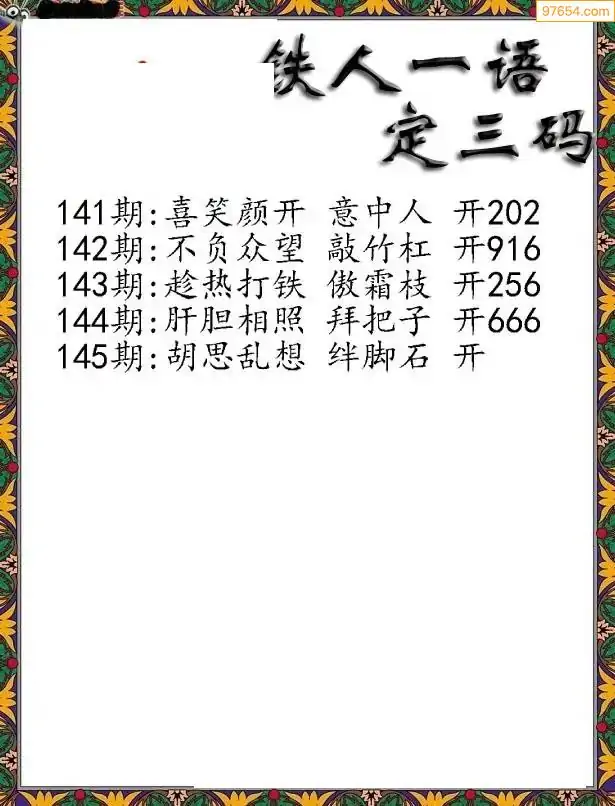 97654.com
铁人一语
定三码
141期:喜笑颜开 意中人 开202
142期:不负众望 敲竹杠 开916
143期:趁热打铁 傲霜枝 开256
144期:肝胆相照 拜把子 开666
145期:胡思乱想 绊脚石 开